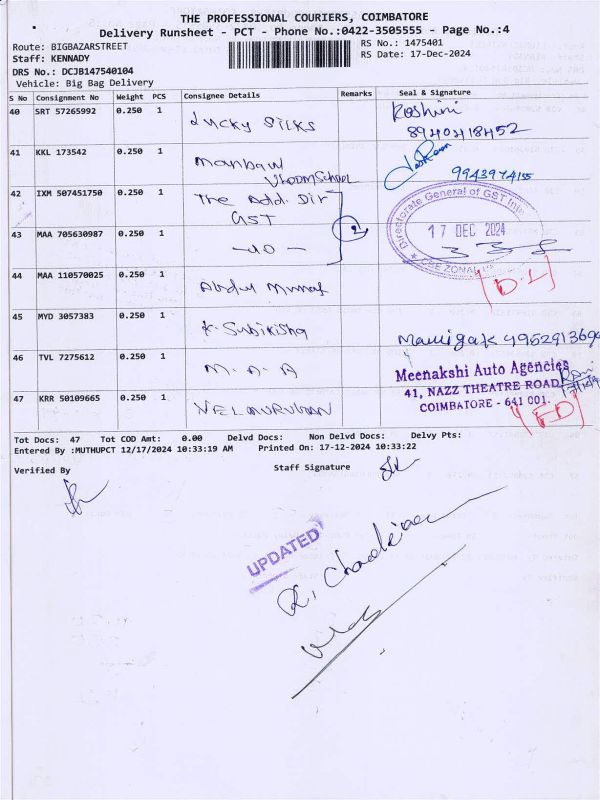 THE PROFESSIONAL COURIERS, COIMBATORE
Delivery Runsheet - PCT - Phone No.:0422-3505555 - Page No.:4
Route: BIGBAZARSTREET
RS No.: 1475401
Staff: KENNADY
RS Date: 17-Dec-2024
DRS No.: DCJB147540104
Vehicle: Big Bag Delivery
S No Consignment No Weight PCS Consignee Details Remarks Seal & Signature
40 SRT 57265992 0.250 1 Lucky Silks Roshini
8940418452
41 KKL 173542 0.250 1
Vroom School 9943974155
42 IXM 507451750 0.250 1 The Add. Dir
GST
Directorate General of GST
17 DEC 2024
CBE ZONAL
43 MAA 705630987 0.250 1 -do-
(D.L)
44 MAA 110570025 0.250 1 Abdul Munaf
45 MYD 3057383 0.250 1 K. Subiksha
46 TVL 7275612 0.250 1 M. A. A
Meenakshi Auto Agencies
41, NAZZ THEATRE ROAD
COIMBATORE - 641 001.
47 KRR 50109665 0.250 1 VELMURUGAN
(FD)
Tot Docs: 47 Tot COD Amt: 0.00 Delvd Docs: Non Delvd Docs: Delvy Pts:
Entered By :MUTHUPCT 12/17/2024 10:33:19 AM Printed On: 17-12-2024 10:33:22
Verified By
Staff Signature
UPDATED